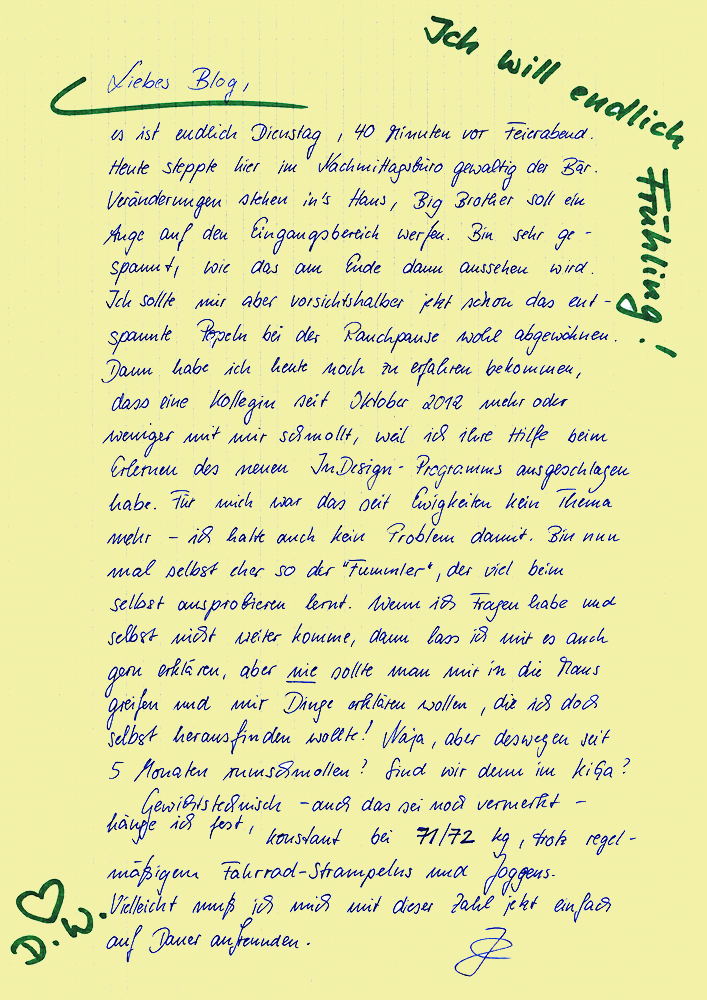 Ich will endlich
Frühling!
Liebes Blog,
es ist endlich Dienstag, 40 Minuten vor Feierabend.
Heute steppte hier im Nachmittagsbüro gewaltig der Bär.
Veränderungen stehen in's Haus, Big Brother soll ein
Auge auf den Eingangsbereich werfen. Bin sehr ge-
spannt, wie das am Ende dann aussehen wird.
Ich sollte mir aber vorsichtshalber jetzt schon das ent-
spannte Popeln bei der Rauchpause wohl abgewöhnen.
Dann habe ich heute noch zu erfahren bekommen,
dass eine Kollegin seit Oktober 2012 mehr oder
weniger mit mir schmollt, weil ich ihre Hilfe beim
Erlernen des neuen InDesign-Programms ausgeschlagen
habe. Für mich war das seit Ewigkeiten kein Thema
mehr - ich hatte auch kein Problem damit. Bin nun
mal selbst eher so der "Fummler", der viel beim
selbst ausprobieren lernt. Wenn ich Fragen habe und
selbst nicht weiter komme, dann lass ich mir es auch
gern erklären, aber nie sollte man mir in die Maus
greifen und mir Dinge erklären wollen, die ich doch
selbst herausfinden wollte! Naja, aber deswegen seit
5 Monaten rumschmollen? Sind wir denn im KiGa?
Gewichtstechnisch - auch das sei noch vermerkt -
hänge ich fest, konstant bei 71/72 kg, trotz regel-
mäßigem Fahrrad-Strampelns und Joggens.
Vielleicht muß ich mich mit dieser Zahl jetzt einfach
auf Dauer anfreunden.
D.W.